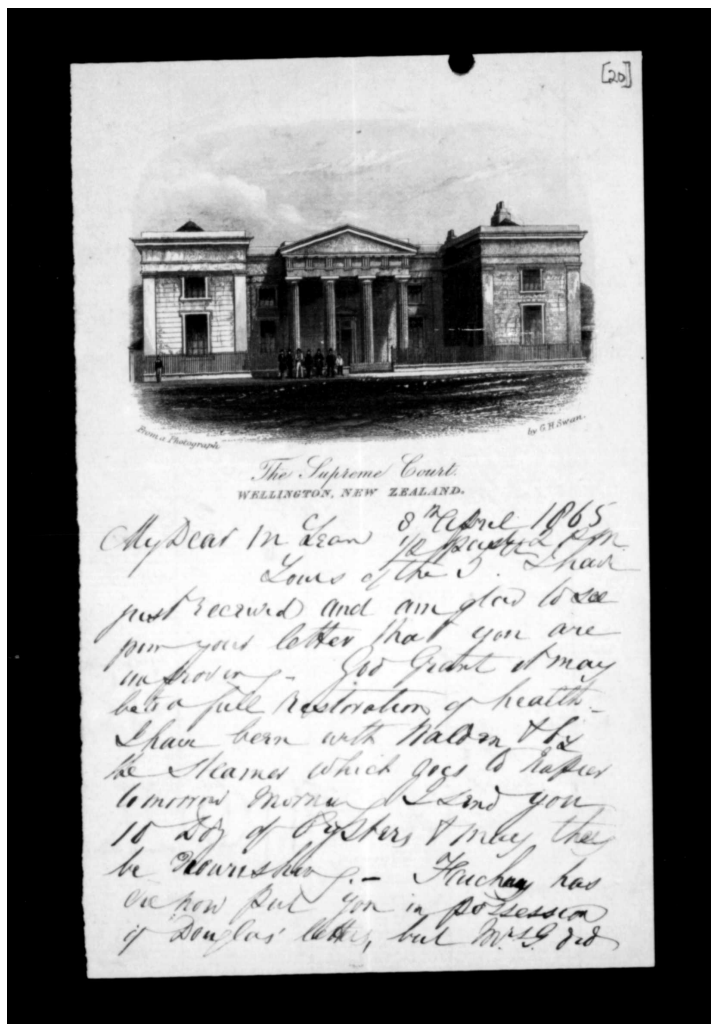 [20]
From a Photograph
by G. H. Swan.
The Supreme Court.
WELLINGTON, NEW ZEALAND.
My Dear McLean 8th April 1865
1/2 past 2 P.M.
Yours of the 3. I have
just received and am glad to see
from your letter that you are
improving - God Grant it may
be to a full restoration of health -
I have been with & by
the Steamer which goes to Napier
tomorrow morning I send you
10 Doz of Oysters & may they
be Nourishing. - has
ere now put you in possession
of Douglas' letter, but Mr. G. did